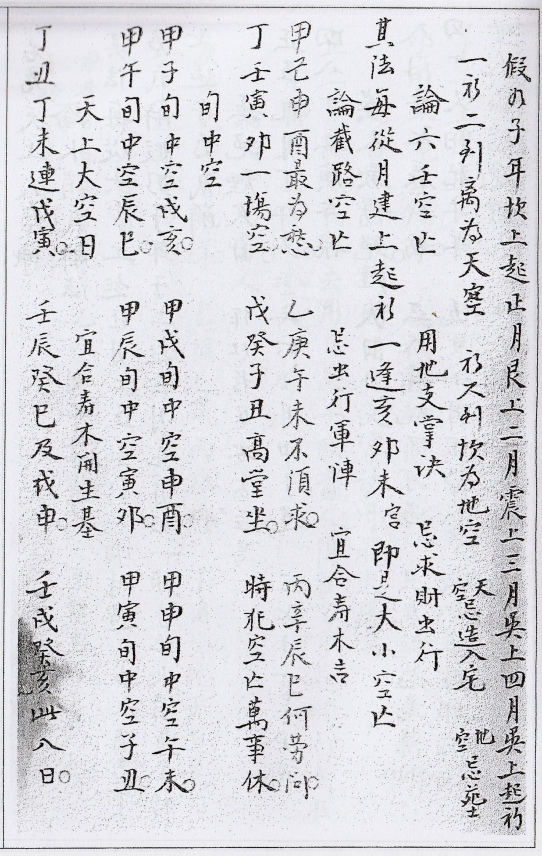 假如子年坎上起正月艮上二月震上三月巽上四月巽上起初
一初二到离為天空　初八到坎為地空　天空忌造入宅　地空忌葬
論六壬空亡　用地支掌诀　忌求財出行
其法每從月建上起初一逢亥卯未宫即是大小空亡
論截路空亡　忌出行軍陣　宜合寿木吉
甲己申酉最為愁。乙庚午未不須求。丙辛辰巳何劳问。
丁壬寅卯一塲空　戊癸子丑高堂坐。時犯空亡萬事休。
旬中空
甲子旬中空戌亥。甲戌旬中空申酉。甲申旬中空午未。
甲午旬中空辰巳。甲辰旬中空寅卯。甲寅旬中空子丑。
天上大空日　宜合寿木開生基
丁丑丁未連戊寅。壬辰癸巳及戊申。壬戌癸亥此八日。